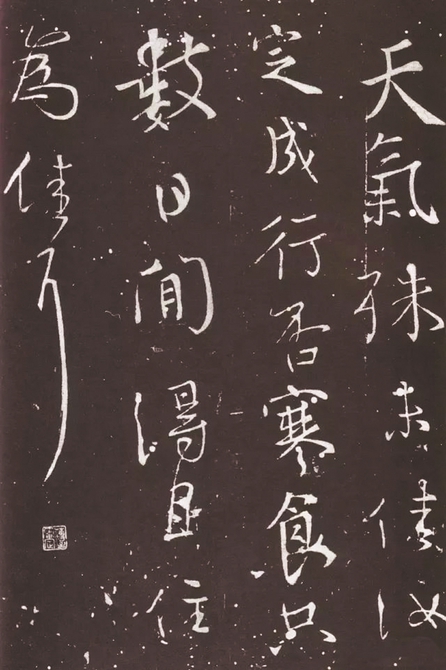 天氣殊未佳汝
定成行否寒食只
數日間得且住
為佳耳